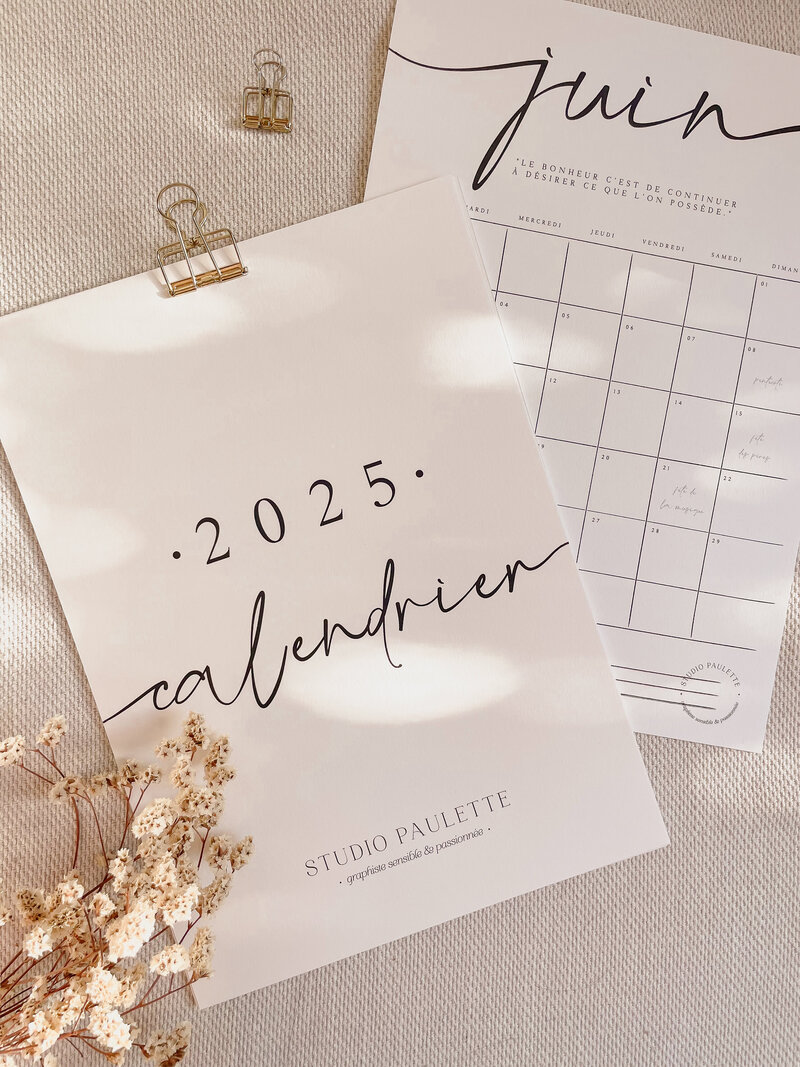 juin
"LE BONHEUR C'EST DE CONTINUER
À DÉSIRER CE QUE L'ON POSSÈDE."
MARDI MERCREDI JEUDI VENDREDI SAMEDI DIMAN
01
04 05 06 07 08
pentecôte
12 13 14 15
fête
des pères
20 21 22
fête de
la musique
27 28 29
STUDIO PAULETTE
graphiste sensible & passionnée
·2025·
calendrier
STUDIO PAULETTE
· graphiste sensible & passionnée ·